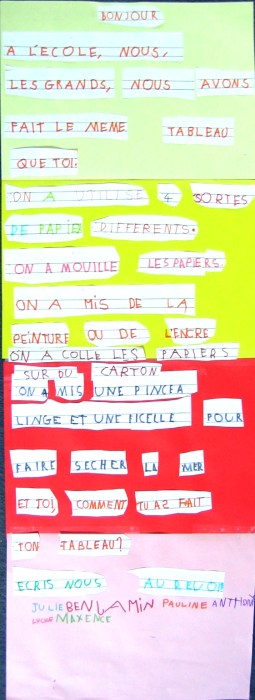 BONJOUR
A L'ECOLE, NOUS,
LES GRANDS, NOUS AVONS
FAIT LE MEME TABLEAU
QUE TOI.
ON A UTILISE 4 SORTES
DE PAPIE DIFFERENTS.
ON A MOUILLE LES PAPIERS.
ON A MIS DE LA
PEINTURE OU DE L'ENCRE
ON A COLLE LES PAPIERS
SUR DU CARTON
ON A MIS UNE PINCEA
LINGE ET UNE FICELLE POUR
FAIRE SECHER LA MER
ET TOI, COMMENT TU AS FAIT
TON TABLEAU?
ECRIS NOUS AU REVOIR
JULIE BENJAMIN PAULINE ANTHON
MAXENCE